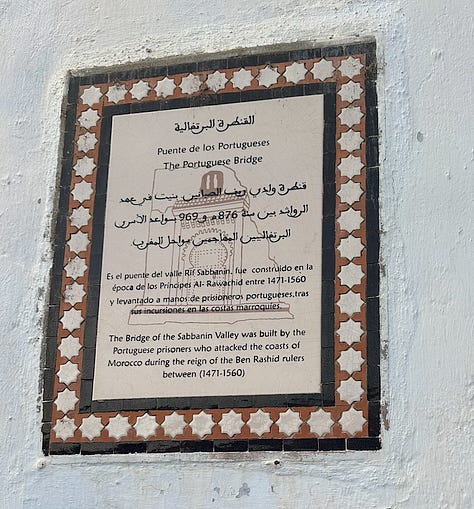 القنطرة البرتغالية
Puente de los Portugueses
The Portuguese Bridge
قنطرة وادي ريف الصبانين بنيت في عهد
الرواشد بين سنة 876م و 969 بسواعد الأسرى
البرتغاليين المهاجمين سواحل المغرب
Es el puente del valle Rif Sabbanin, fue construido en la
época de los Príncipes Al- Rawachid entre 1471-1560
y levantado a manos de prisioneros portugueses,tras
sus incursiones en las costas marroquíes.
The Bridge of the Sabbanin Valley was built by the
Portuguese prisoners who attacked the coasts of
Morocco during the reign of the Ben Rashid rulers
between (1471-1560)